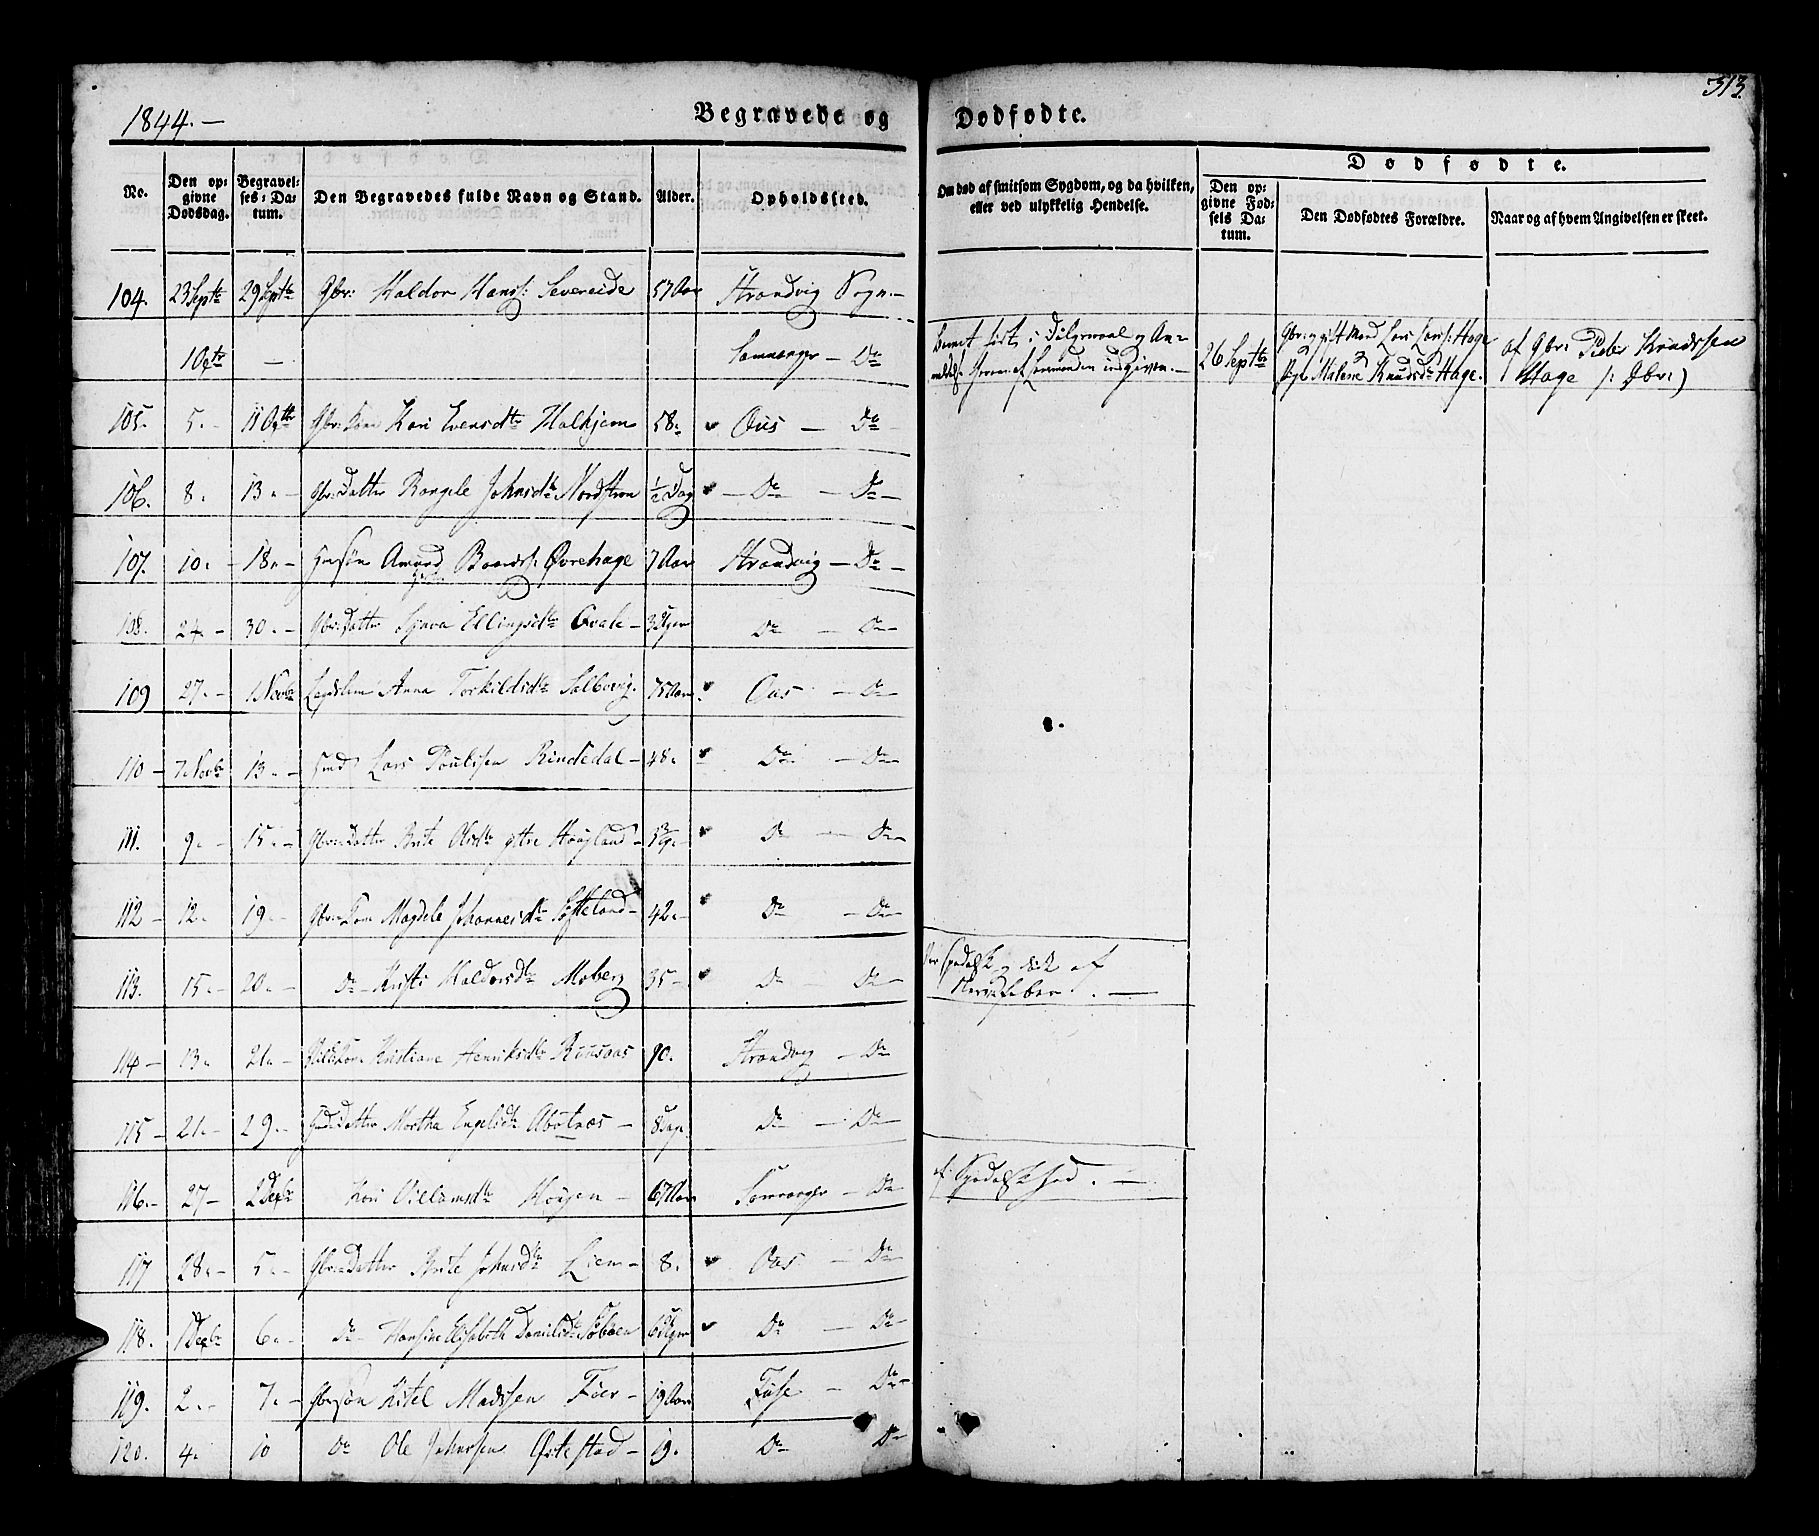 313.
1844.—
Begravede og Dødfødte.
No.
Den op-
givne
Dødsdag.
Begravel-
ses-Da-
tum.
Den Begravedes fulde Navn og Stand.
Alder.
Opholdssted.
Om død af smitsom Sygdom, og da hvilken,
eller ved ulykkelig Hendelse.
Dødfødte.
Den op-
givne Fød-
sels Da-
tum.
Den Dødfødtes Forældre.
Naar og af hvem Angivelsen er skeet.
104. 23 Septbr 29 Septbr Gbr: Haldor Hans: Severeide 57 Aar Strandvig Sogn.—
10 — Samnanger — Do
26 Septbr Gbr: og gift Mand Lars Lars: Hage af Gbr: Peder Knudssen
Malene Knudsdtr Hage. Hage /: Gbr:)
105. 5. — 11 Gbr: Kone Kari Evensdtr Halhjem 58. Ous — Do
106. 8. 13. — Gbr: Datter Rangele Johnsdtr Nordstrøn ½ Dag — Do — Do —
107. 10. — 18. — Søn Amund Baards: Øvrehage 7 Aar Strandvig — Do —
108. 24. — 30. — Gbr: Datter Ellingsdtr Qvale — 3 Uger Do — Do —
109 27. — 1 Novbr Anna Torkildsdtr Solbverg. 75 Aar. Oas — Do
110 — 7. Novbr 13. — Lars Poulsen Rindedal — 48. Do — Do
111. 9. — 15. — Gbr: Datter Brite Olsdtr yttre Hougland — Do — Do
112 — 12. 19. — Gbr: Kone Magdele Johannesdtr Søfteland — 42. — Do — Do
113. 15. — 20. — Do — Kristi Haldorsdtr Moberg 35 — Do Do — Var Spedalsk og af
Nervefeber. —
114 — 13. 21. — Kristiane Henriksdtr 90. Strandvig — Do
115 — 21. — 29. — Datter Martha Engelsdtr Abotnæs — 8 Dage. Do — Do
116. — 27 — 2 Decbr Kari Villumsdtr Hougen — 67 Aar Samnanger — Do af Spedalskhed. —
117 28. — 5. — Gbr: Datter Brite Johnsdtr Liem — 8. Oas — Do
118. 1 Decbr 6. Do — Hansine Elisabeth Danielsdtr Søbøen 6 Uger Do — Do
119. 2. — 7. — Gbr: Søn Ketel Madssen — 19 Aar Fuse — Do —
120. 4. 10 Do Ole Johnssen Østestad — 19. Do Do